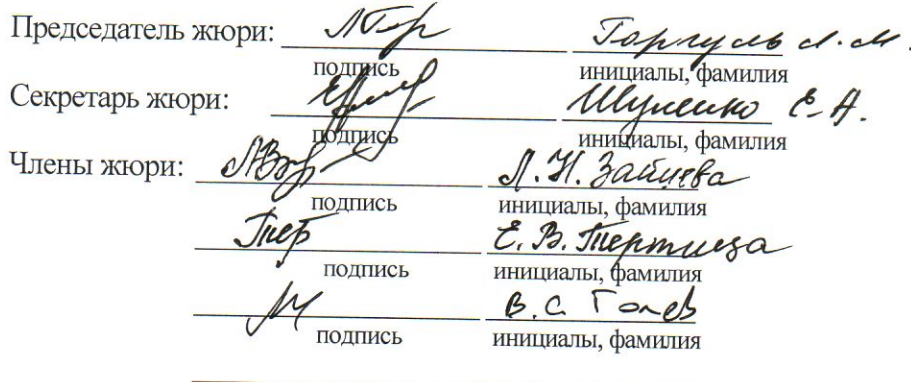 Председатель жюри: Горгуль Л.М.
подпись инициалы, фамилия
Секретарь жюри: Шуленко Е.А.
подпись инициалы, фамилия
Члены жюри: Л.Н. Зайцева
подпись инициалы, фамилия
Е.В. Тертица
подпись инициалы, фамилия
В.С. Голев
подпись инициалы, фамилия